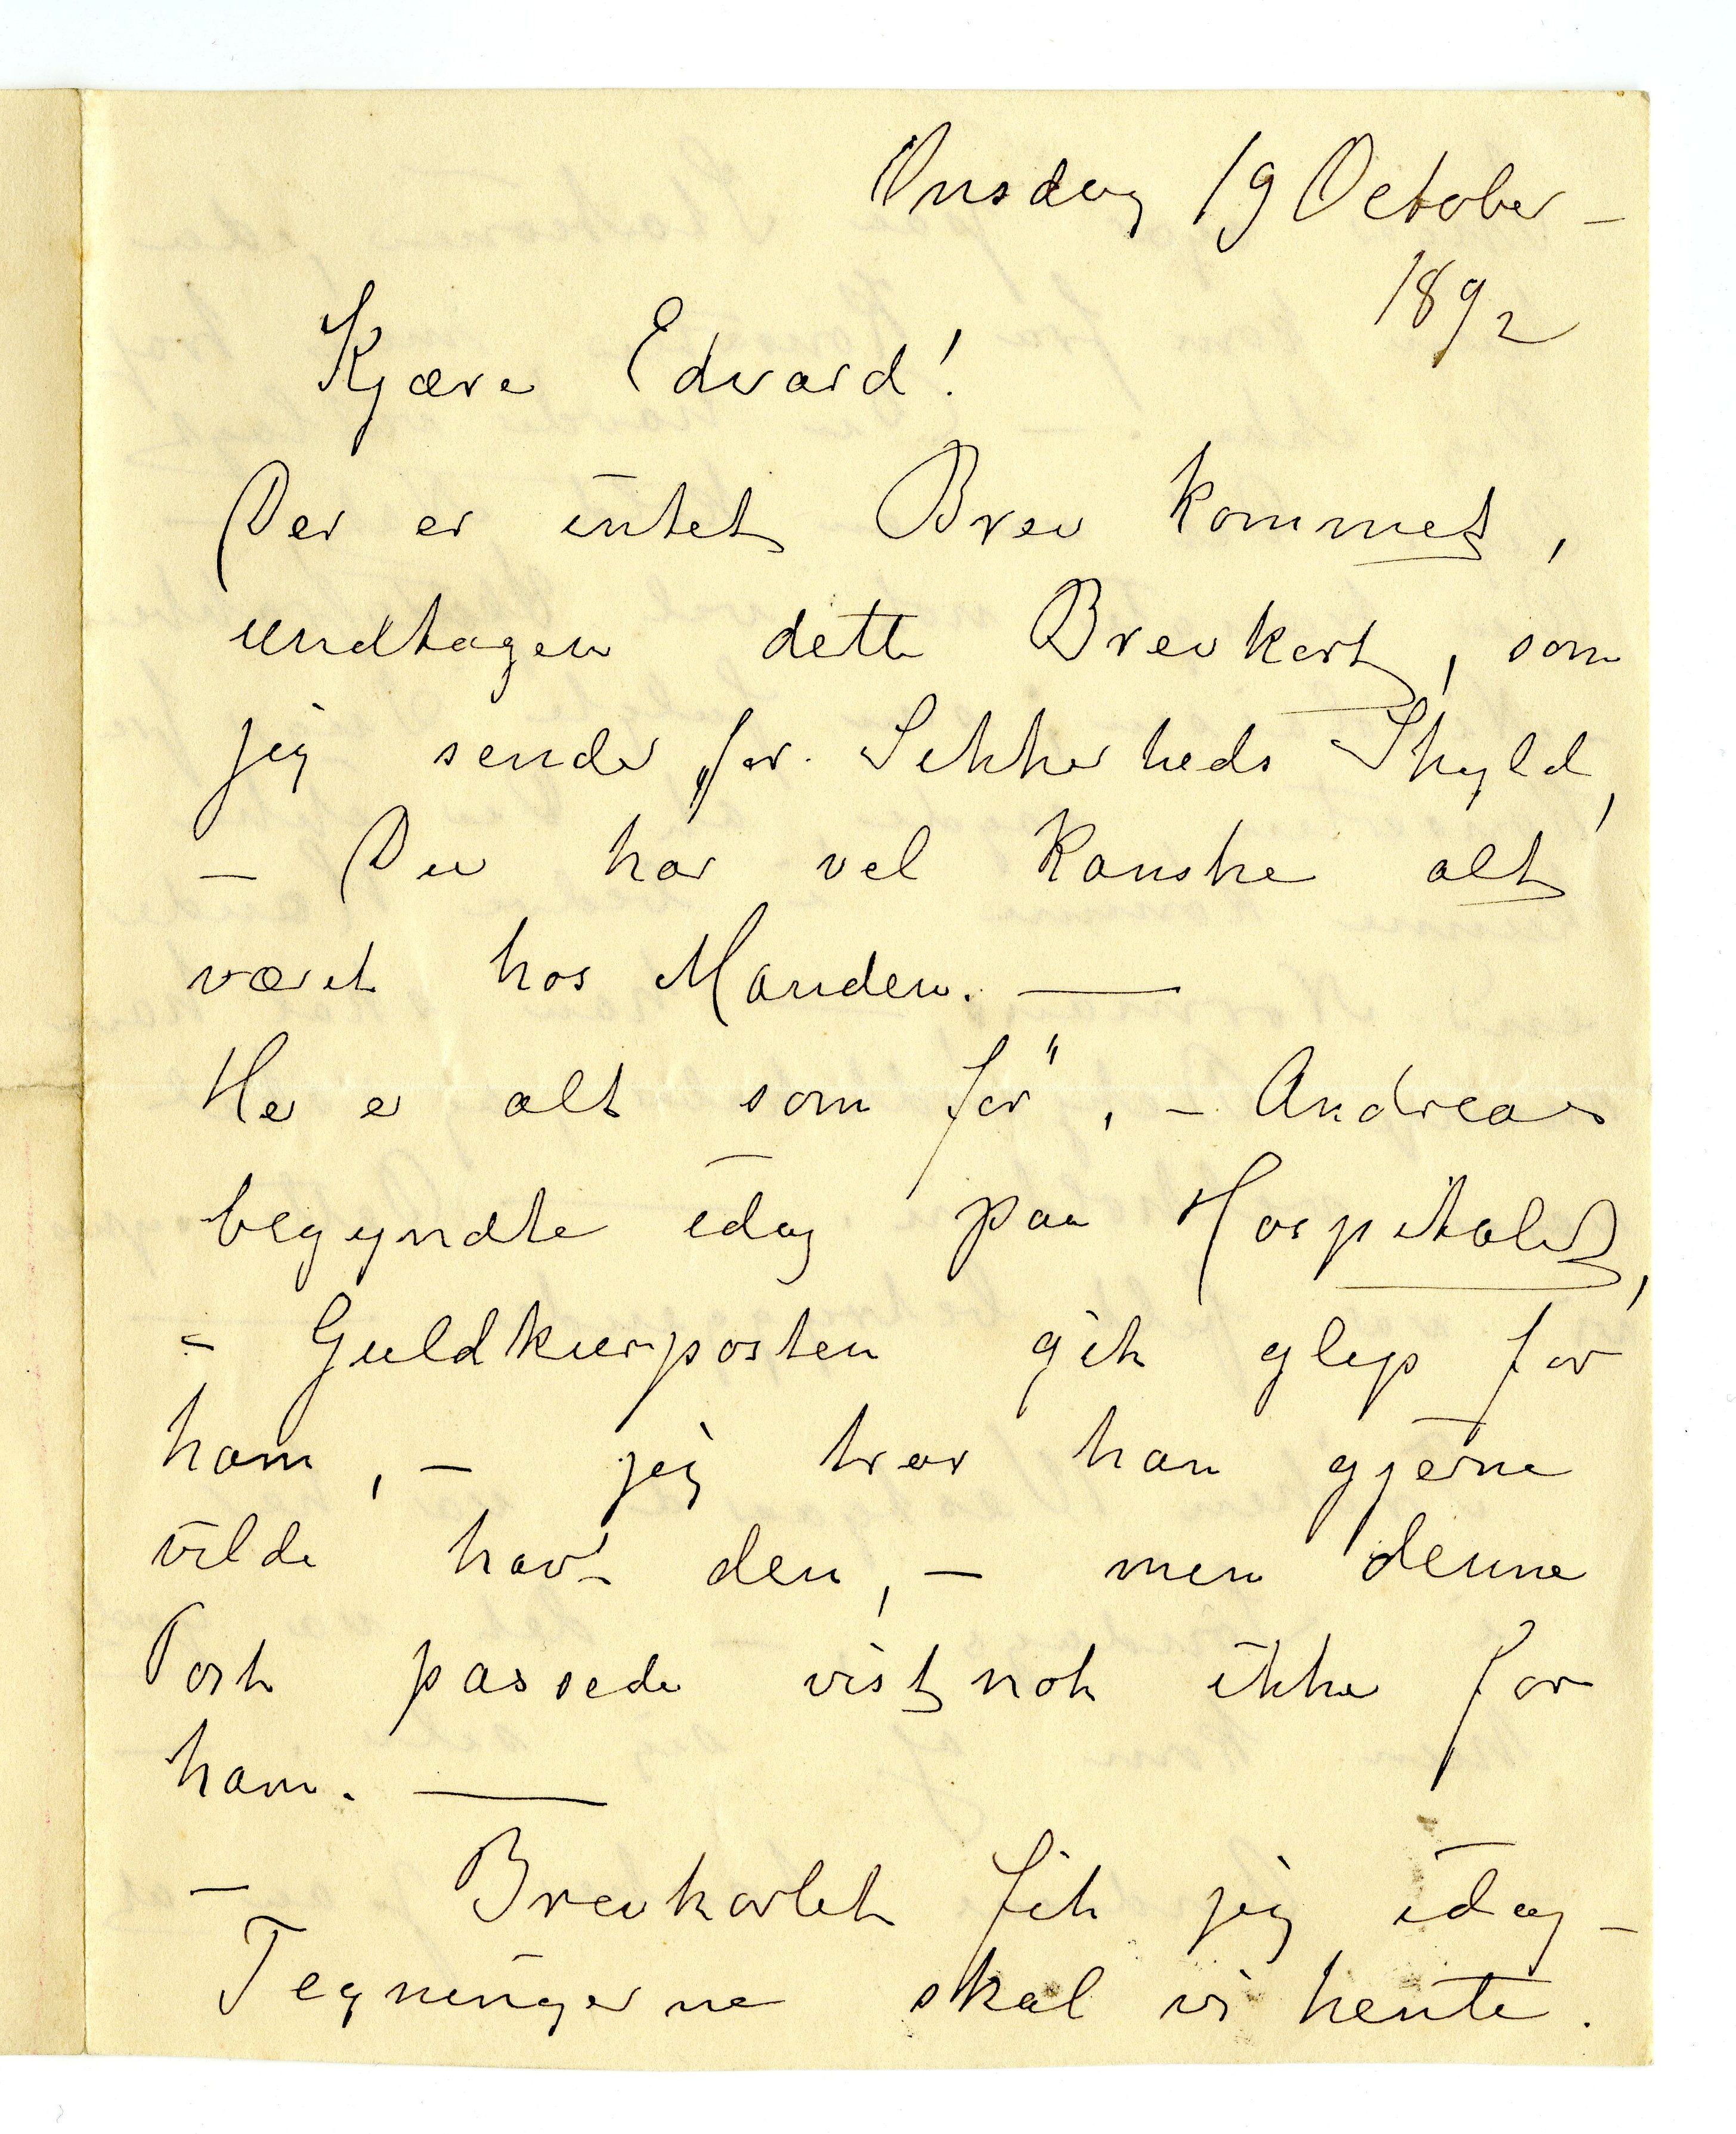 Onsdag 19 October –
1892
Kjære Edvard!
Der er intet Brev kommet,
undtagen dette Brevkort, som
jeg sender for Sikkerheds Skyld,
– Du har vel kanske alt
været hos Manden. —
Her er alt som før, – Andreas
begyndte idag paa Hospitalet,
– Guldkurposten gik glip for
ham, – jeg tror han gjerne
vilde hav't den, – men denne
Post passede vist nok ikke for
ham. —
– Brevkortet fik jeg idag –
Tegningerne skal vi hente.